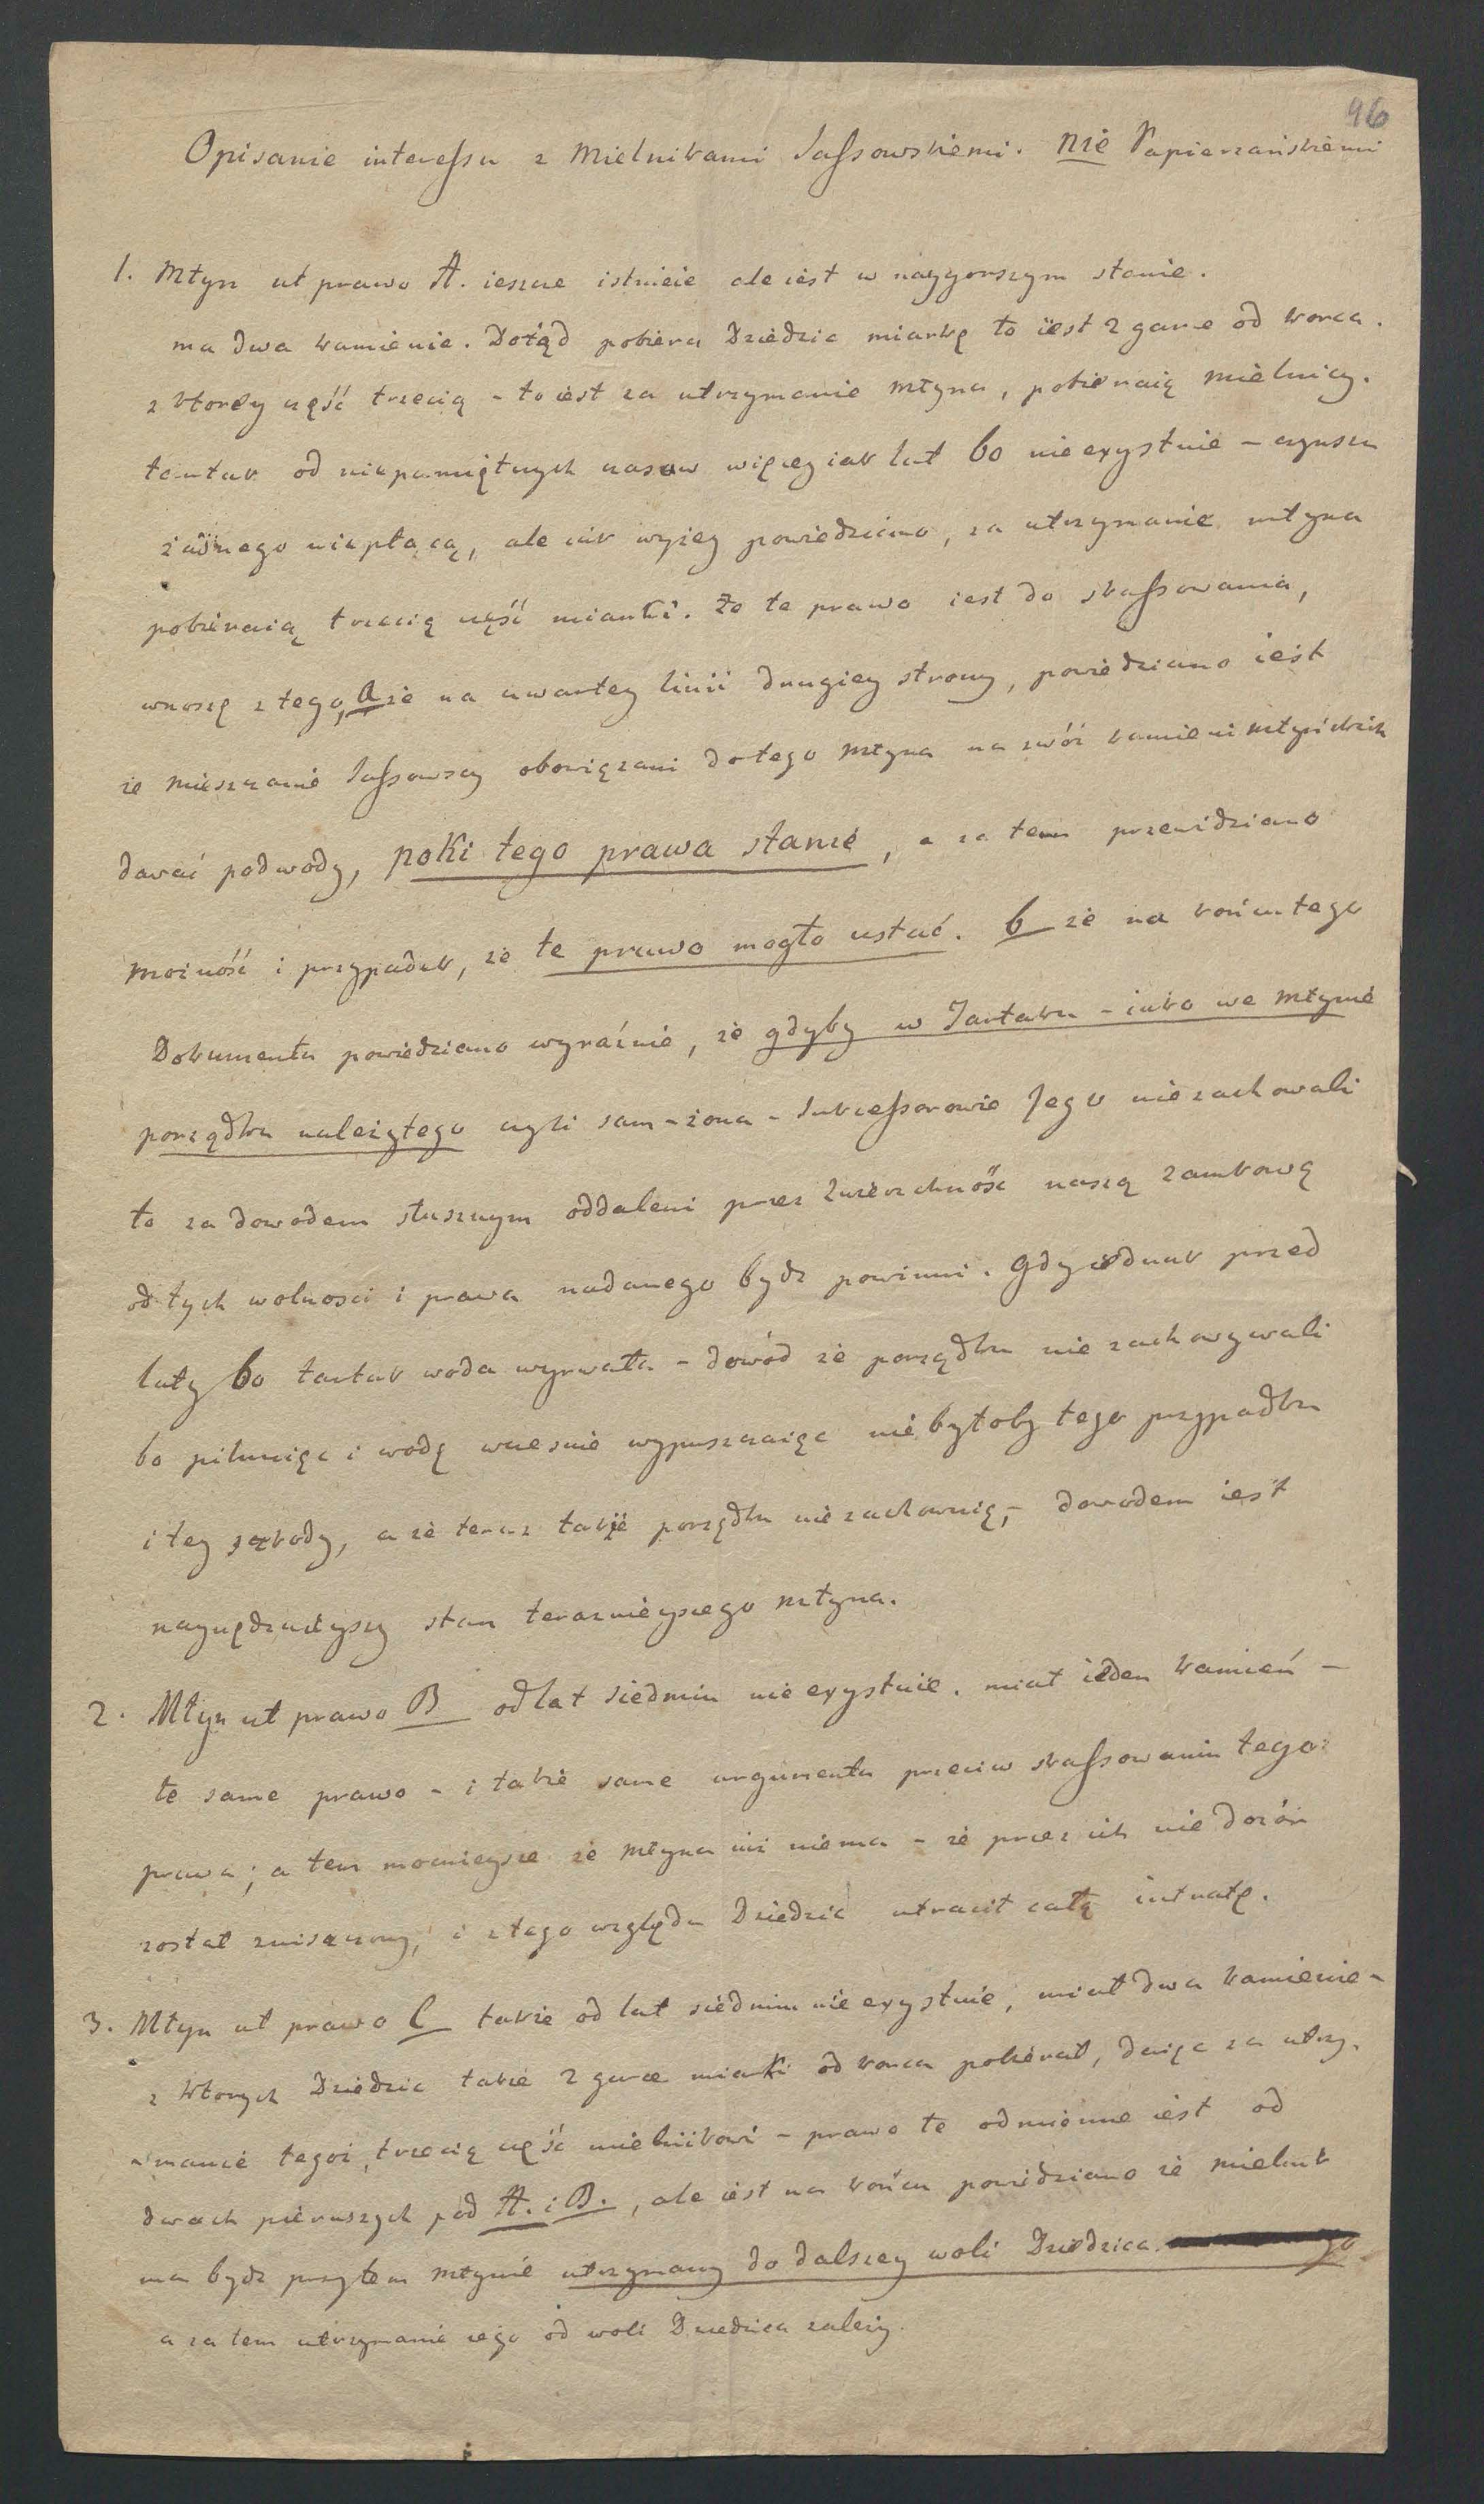 46
Opisanie interessu z Mielnikami Sassowskiemi. nie Papierzańskiemi
1. Młyn ut prawo A. ieszcze istnieie ale iest w naygorszym stanie.
ma dwa kamienie. Dotąd pobiera Dziedzic miarkę to iest 2 garce od korca.
z ktorey część trzecią - to iest za utrzymanie młyna, pobieraią mielnicy.
tartak od niepamiętnych czasow więcey iak lat 60 nie exystuie - czynszu
żadnego niepłacą, ale iak wyżey powiedziano, za utrzymanie młyna
pobieraią trzecią część miarki. Że te prawo iest do skassowania,
wnoszę z tego, a że na czwartey linii drugiey strony, powiedziano iest
że mieszczanie Sassowscy obowiązani do tego młyna na zwóz kamieni młyńskich
dawać podwody, poki tego prawa stanie, a za tem przewidziano
możność i przypadek, że te prawo mogło ustać. b że na końcu tego
Dokumentu powiedziano wyraźnie, że gdyby w Tartaku - iako we młynie
porządku należytego czyli sam - żona - Sukcessorowie Jego niezachowali
to za dowodem słusznym oddaleni przez zwierzchność naszą zamkową
od tych wolnosci i prawa nadanego bydź powinni. Gdy iednak przed
laty 60 tartak woda wyrwała - dowód że porządku nie zachowywali
bo pilnuiąc i wodę wcześnie wypuszczaiąc nie byłoby tego przypadku
i tey szkody, a że teraz także porządku nie zachowuią, - dowodem iest
naynędznieyszy stan teraznieyszego młyna.
2. Młyn ut prawo B od lat siedmiu nie exystuie. miał ieden kamień -
te same prawo - i takie same argumenta przeciw skassowaniu tego:
prawa; a tem mocnieysze że młyna iuż niema - że przez ich nie dozór
został zniszczony, i z tego względu Dziedzic utracił całą intratę.
3. Młyn ut prawo C także od lat siedmiu nie exystuie, miał dwa kamienie -
z ktorych Dziedzic także 2 garce miarki od korca pobierał, daiąc za utrzy-
-manie tegoż, trzecią część mielnikowi - prawo te odmienne iest od
dwoch pierwszych pod A. i B., ale iest na końcu powiedziano że mielnik
ma bydź przytem młynie utrzymany do dalszey woli Dziedzica.
a za tem utrzymanie iego od woli Dziedzica zależy.